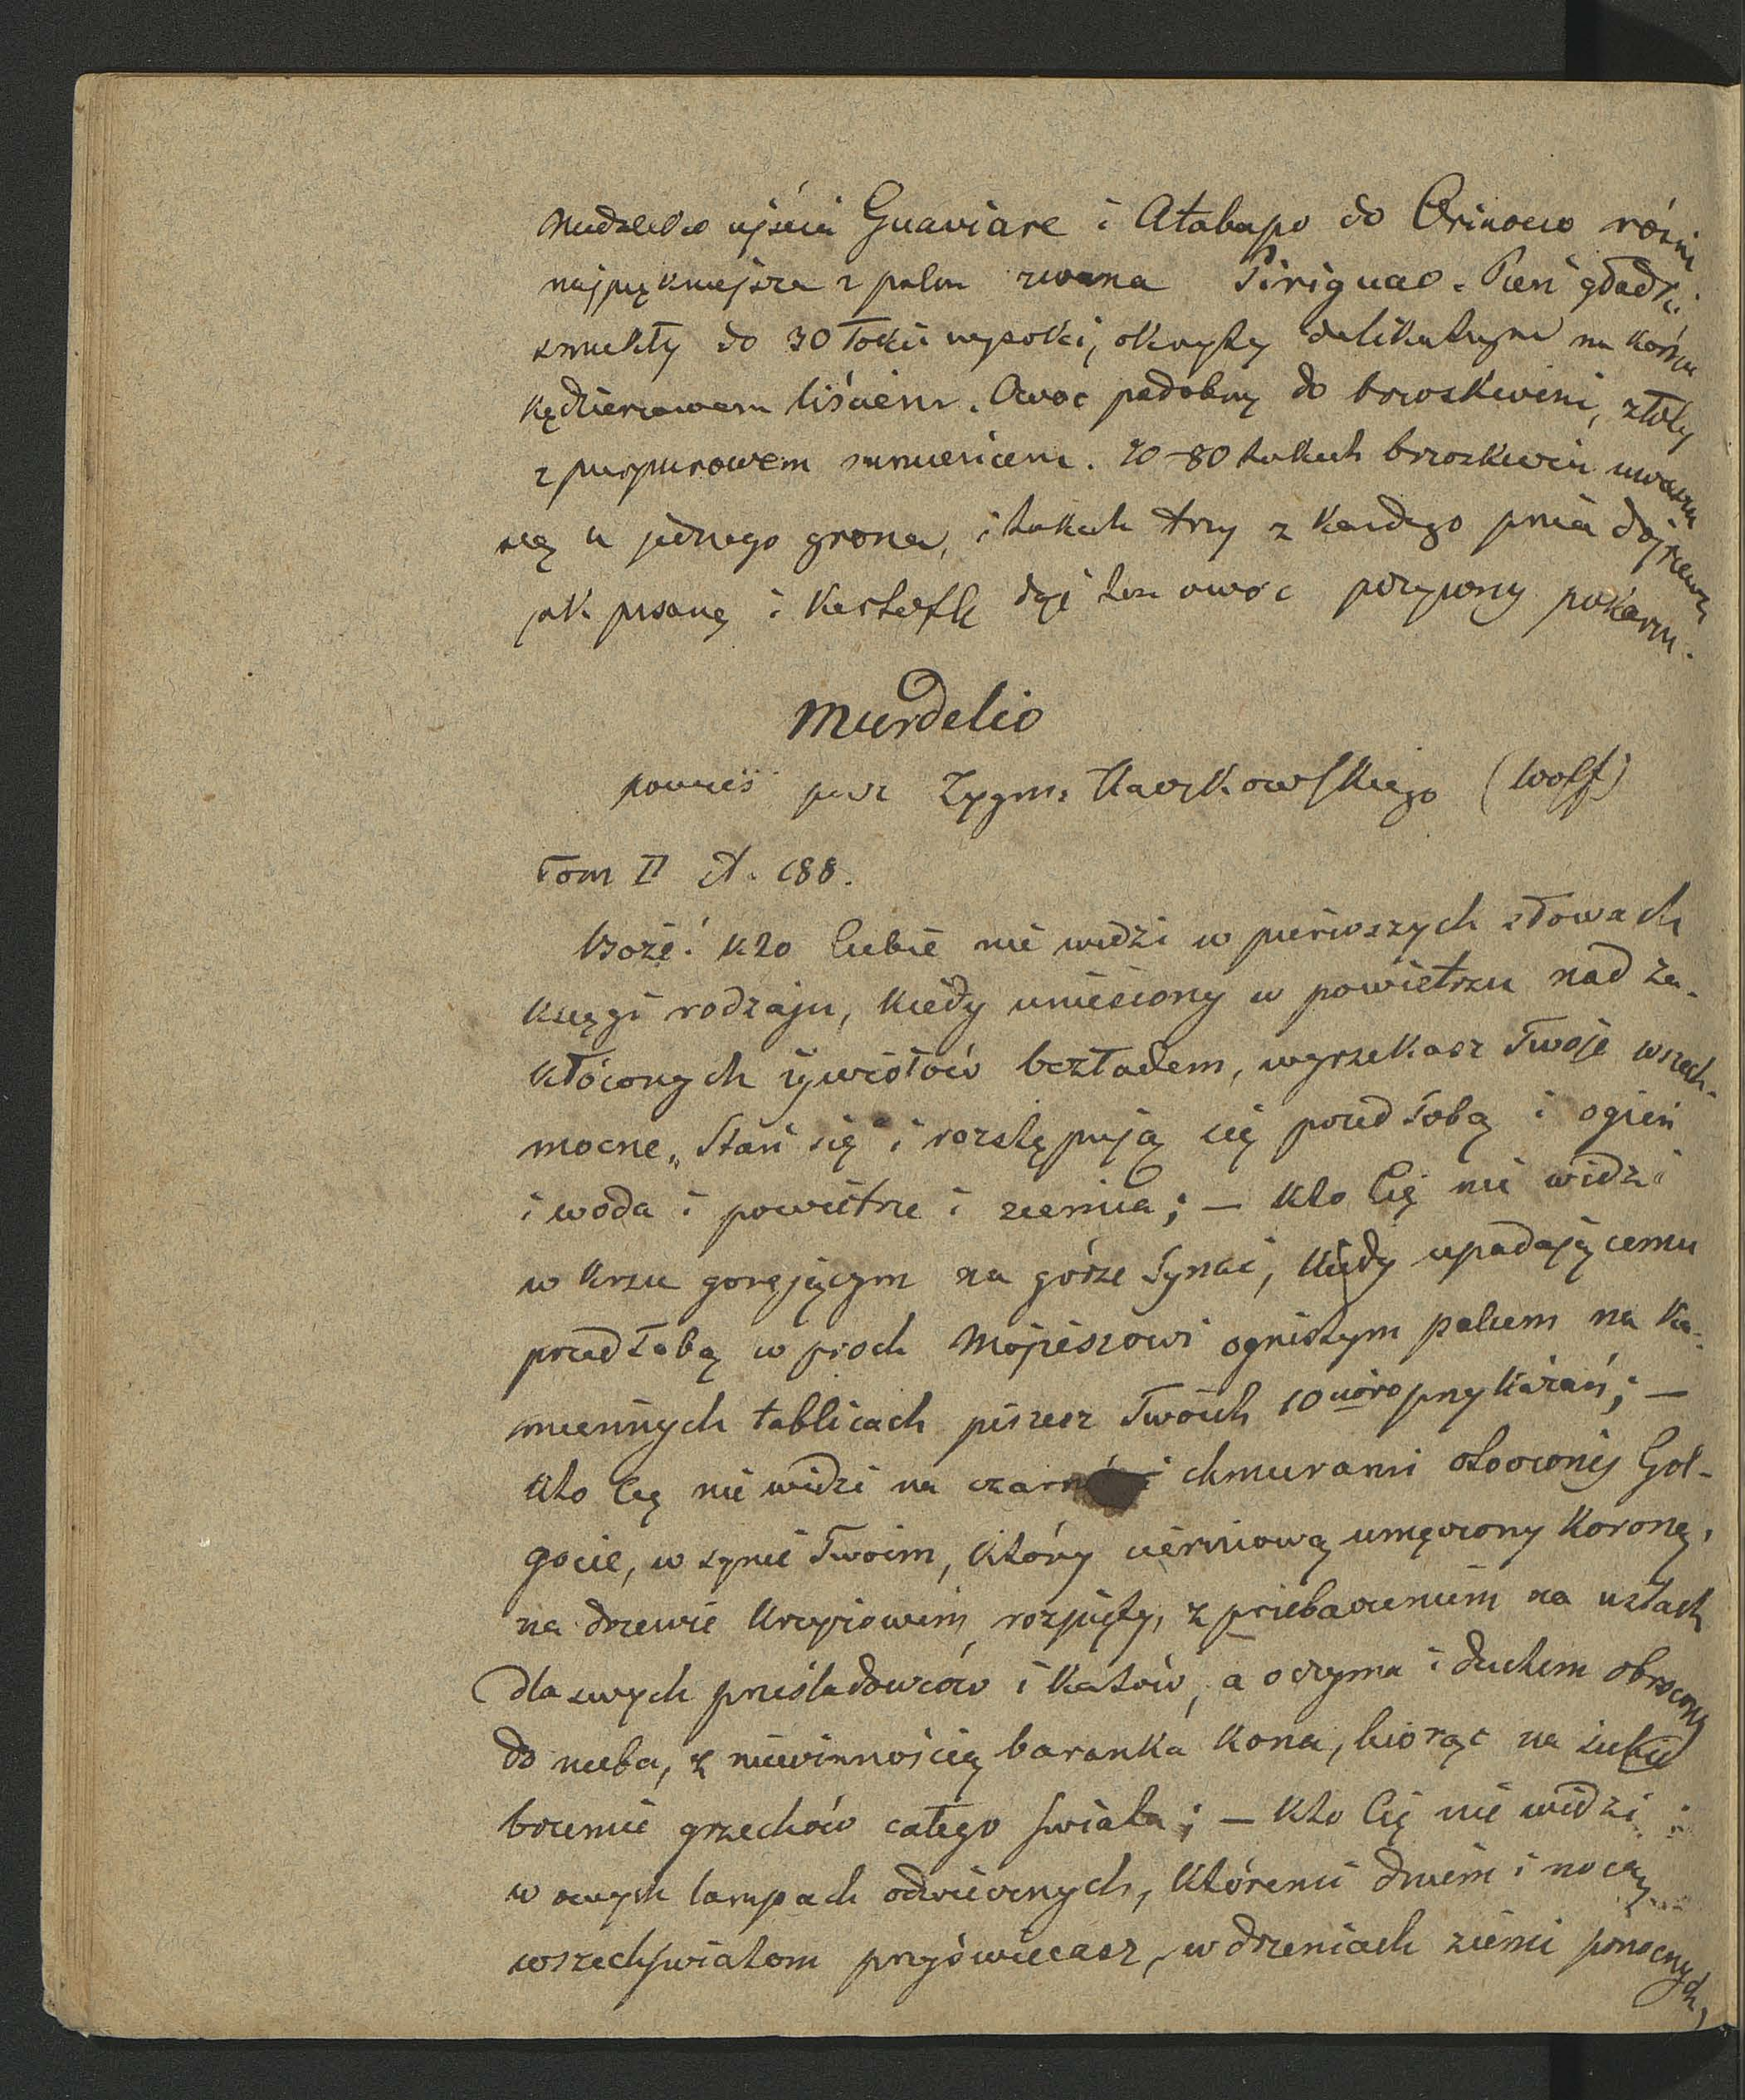 Niedaleko ujścia Guaviare i Atabapo do Orinoco rośnie
najpiękniejsza z palm zwana Piriguao. Pień gładki
smukły do 30 łokci wysoki, okryty delikatnym na końcu
kędzierzawem liściem. Owoc podobny do brzoskwini, złoty
z purpurowem rumieńcem. 70-80 takich brzoskwiń uwiesza
się u jednego grona, i takich trzy z każdego pnia dojrzewa
jak pisang i kartofle daje ten owoc pożywny pokarm.
Murdelio
powieś przez Zygm. Kaczkowskiego (Wolf)
Tom II st. 188.
Boże! Kto Ciebie nie widzi w pierwszych słowach
księgi rodzaju, kiedy uniesiony w powietrzu nad za-
kłóconych żywiołów bezładem, wyrzekasz Twoje wszech-
mocne „Stań się" i rozstępują się przed Tobą i ogień
i woda i powietrze i ziemia; — Kto Cię nie widzi
w krzu gorejącym na górze Synai, kiedy upadającemu
przed Tobą w proch Mojżeszowi ognistym palcem na ka-
miennych tablicach piszesz Twoich 10cioro przykazań; —
Kto Cię nie widzi na czarnémi chmurami otoczonéj Gol-
gocie, w synie Twoim, który cierniową umęczony koroną,
na drzewie krzyżowém rozpięty, z przebaczeniem na ustach
dla swych prześladowców i katów, a oczyma i duchem obrócony
do nieba, z niewinnością baranka kona, biorąc na siebie
brzemie grzechów całego świata; — Kto Cię nie widzi
w owych lampach odwiecznych, któremi dniem i nocą
wszechświatom przyświecasz, w drżeniach ziemi